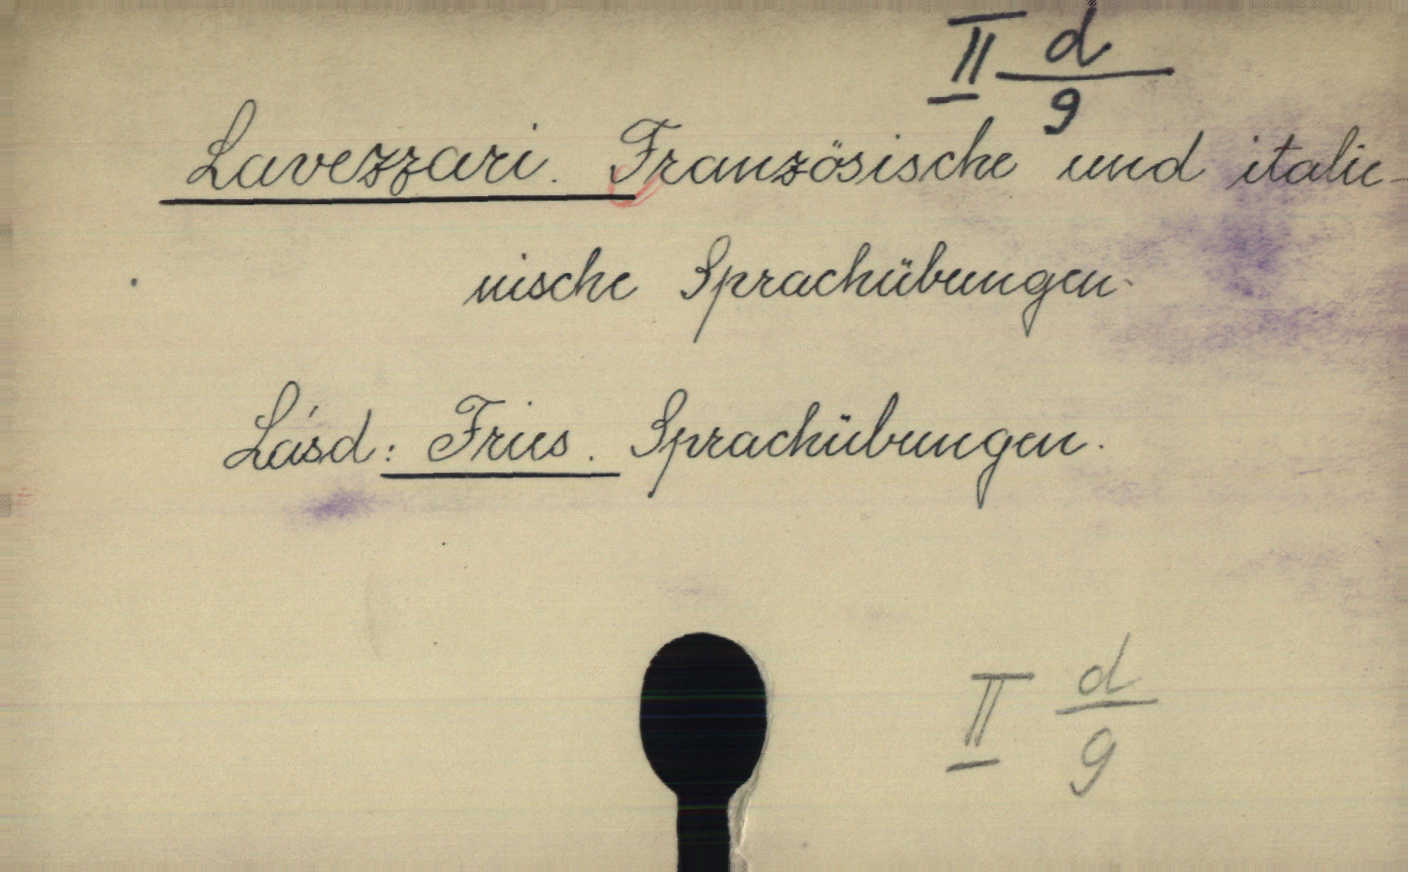 II d/9
Lavezzari. Französische und italie-
nische Sprachübungen.
Lásd: Fries. Sprachübungen.
II d/9